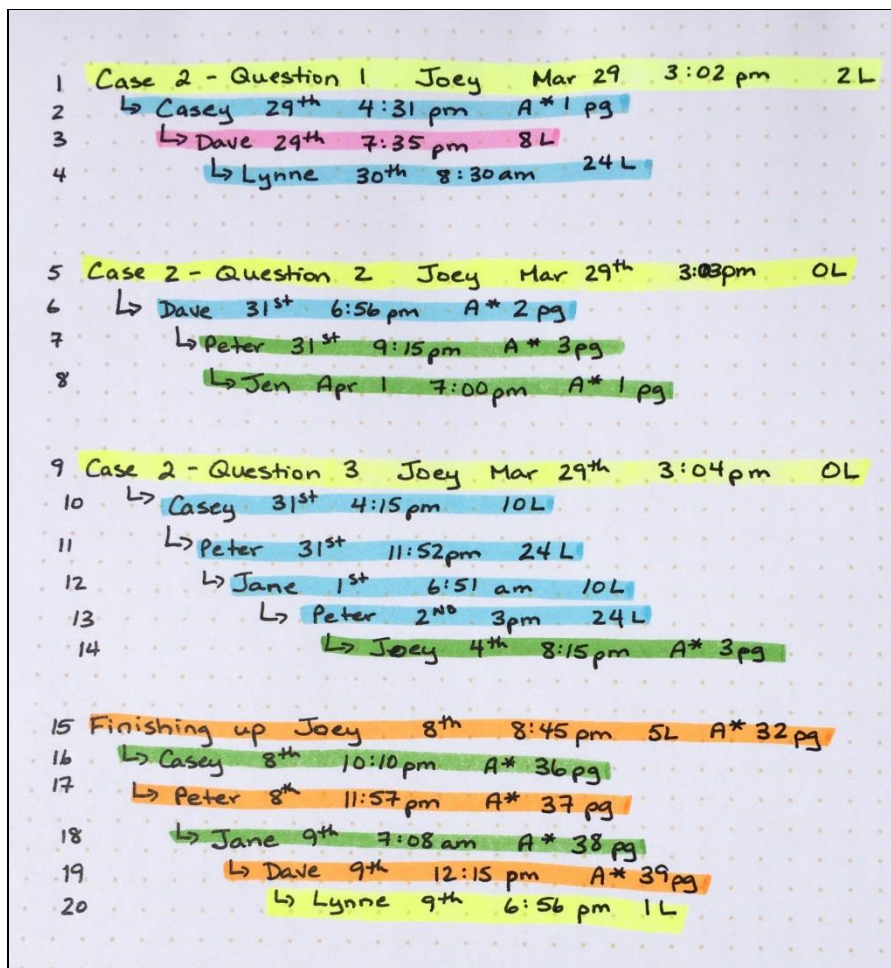 1 Case 2 - Question 1 Joey Mar 29 3:02 pm 2L
2 ↳ Casey 29th 4:31 pm A* 1 pg
3 ↳ Dave 29th 7:35 pm 8L
4 ↳ Lynne 30th 8:30 am 24L
5 Case 2 - Question 2 Joey Mar 29th 3:03pm 0L
6 ↳ Dave 31st 6:56 pm A* 2 pg
7 ↳ Peter 31st 9:15pm A* 3pg
8 ↳ Jen Apr 1 7:00pm A* 1 pg
9 Case 2 - Question 3 Joey Mar 29th 3:04pm 0L
10 ↳ Casey 31st 4:15pm 10L
11 ↳ Peter 31st 11:52pm 24L
12 ↳ Jane 1st 6:51 am 10L
13 ↳ Peter 2ND 3pm 24L
14 ↳ Joey 4th 8:15pm A* 3pg
15 Finishing up Joey 8th 8:45 pm 5L A* 32 pg
16 ↳ Casey 8th 10:10pm A* 36pg
17 ↳ Peter 8th 11:57pm A* 37 pg
18 ↳ Jane 9th 7:08 am A* 38 pg
19 ↳ Dave 9th 12:15 pm A* 39pg
20 ↳ Lynne 9th 6:56 pm 1L